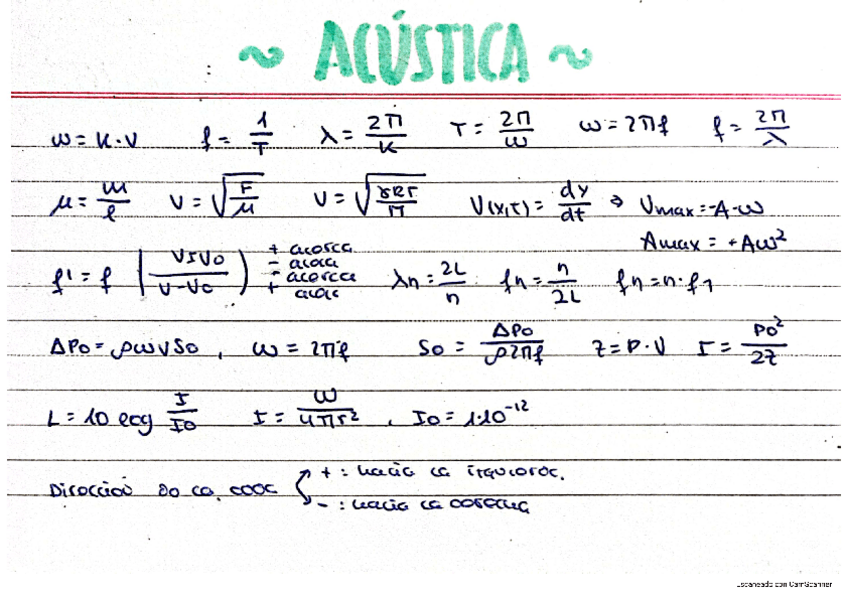 ~ ACÚSTICA ~
ω = K·V f = 1/T λ = 2π/K T = 2π/ω ω = 2πf f = 2π/λ
μ = m/ℓ V = √(F/μ) V = √(γRT/M) V(x,t) = dy/dt → Vmax = -A·ω
Amax = +Aω²
f' = f (V±V0 / V-V0) + acerca
- aleja
- acerca
+ aleja
λn = 2L/n fn = n/2L fn = n·f1
ΔP0 = ρωVS0, ω = 2πf S0 = ΔP0/ρ2πf Z = ρ·V I = P0²/2Z
L = 10 log I/I0 I = W/4πr², I0 = 1·10⁻¹²
Dirección de la onda + : hacia la izquierda.
- : hacia la derecha
Escaneado con CamScanner